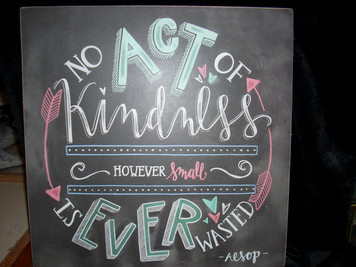 NO ACT OF
Kindness
HOWEVER small
IS EVER WASTED
-AESOP-